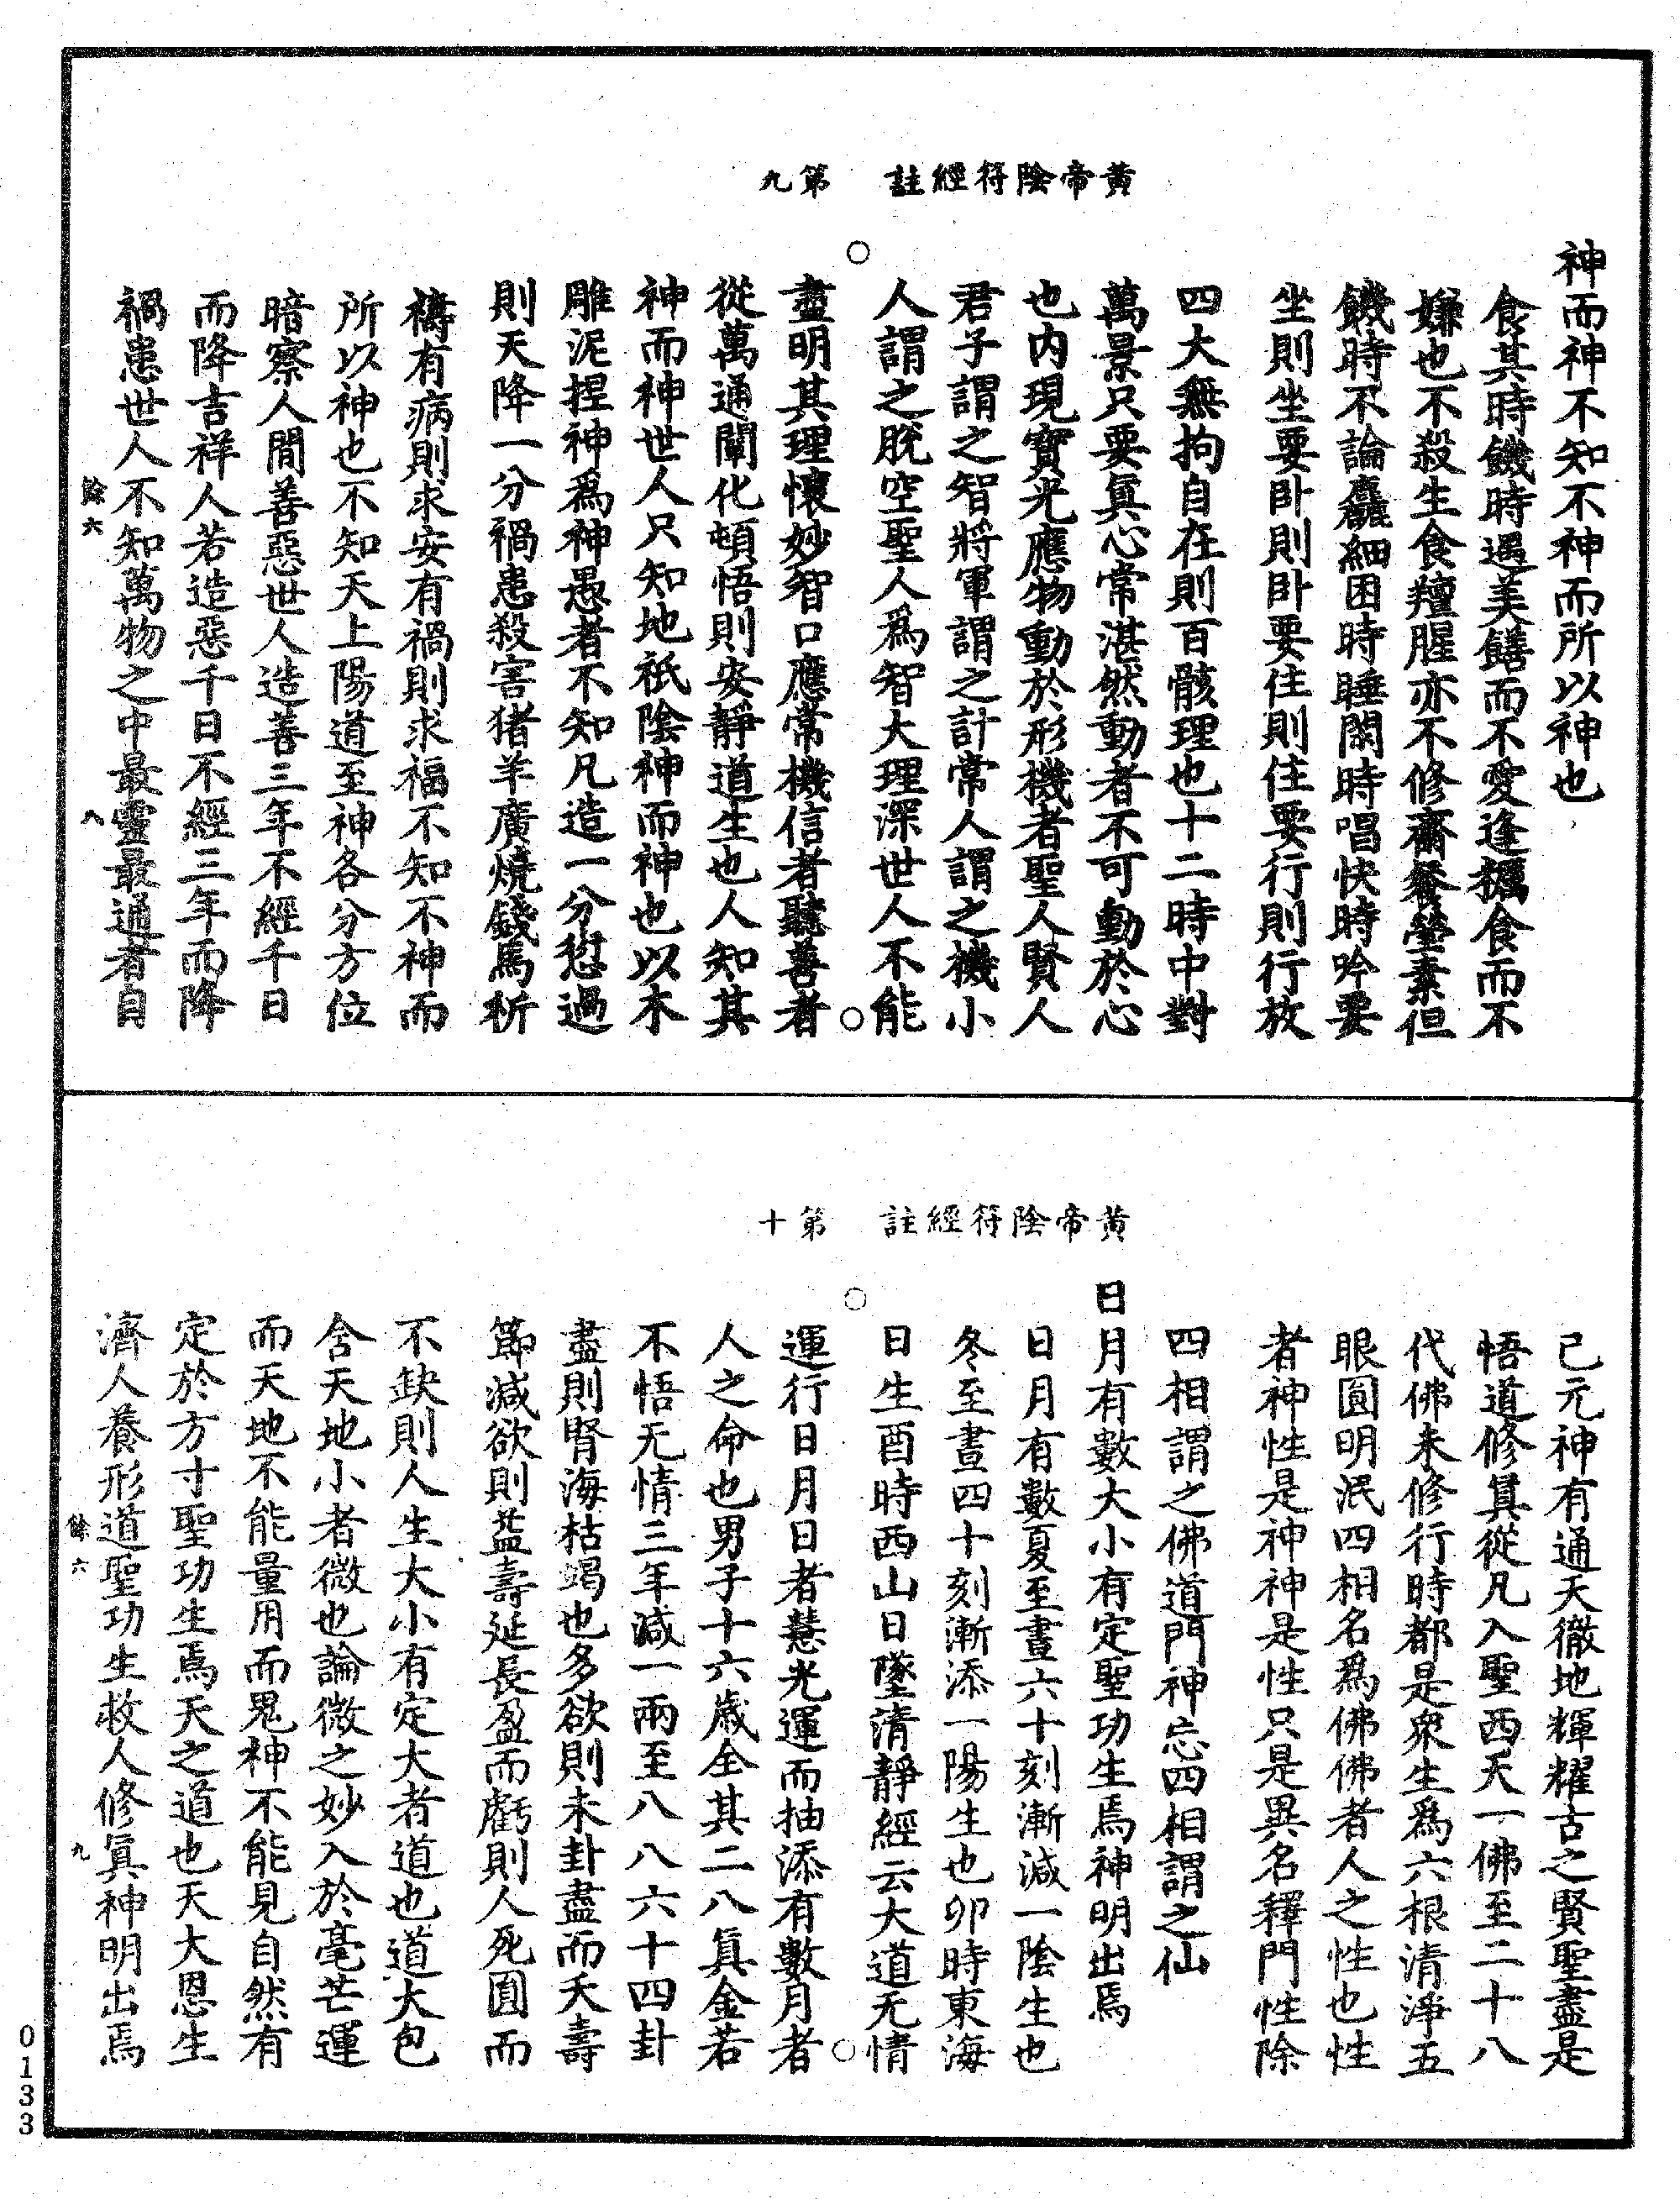 黃帝陰符經註　第九
食其時饑時遇美饍而不愛逢糲食而不
嫌也不殺生食羶腥亦不修齋餐瑩素但
饑時不論麤細困時睡閑時唱快時吟要
坐則坐要卧則卧要住則住要行則行放
四大無拘自在則百骸理也十二時中對
萬景只要眞心常湛然動者不可動於心
也内現寳光應物動於形機者聖人賢人
君子謂之智將軍謂之計常人謂之機小
人謂之脫空聖人爲智大理深世人不能
盡明其理懷妙智口應常機信者聽善者
從萬通闡化頓悟則安靜道生也人知其
神而神不知不神而所以神也
神而神世人只知地祇陰神而神也以木
雕泥捏神爲神愚者不知凡造一分愆過
則天降一分禍患殺害猪羊廣燒錢馬祈
禱有病則求安有禍則求福不知不神而
所以神也不知天上陽道至神各分方位
暗察人間善惡世人造善三年不經千日
而降吉祥人若造惡千日不經三年而降
禍患世人不知萬物之中最靈最通者自
餘六　八
黃帝陰符經註　第十
己元神有通天徹地輝耀古之賢聖盡是
悟道修眞從凡入聖西天一佛至二十八
代佛未修行時都是衆生爲六根清淨五
眼圓明泯四相名爲佛佛者人之性也性
者神神性是神神是性只是異名釋門性除
四相謂之佛道門神忘四相謂之仙
日月有數大小有定聖功生焉神明出焉
日月有數夏至晝六十刻漸減一陰生也
冬至晝四十刻漸添一陽生也卯時東海
日生酉時西山日墜清靜經云大道无情
運行日月日者慧光運而抽添有數月者
人之命也男子十六歲全其二八眞金若
不悟无情三年減一兩至八八六十四卦
盡則腎海枯竭也多欲則未卦盡而夭壽
節減欲則益壽延長盈而虧則人死圓而
不缺則人生大小有定大者道也道大包
含天地小者微也論微之妙入於毫芒運
而天地不能量用而鬼神不能見自然有
定於方寸聖功生焉天之道也天大恩生
濟人養形道聖功生救人修眞神明出焉
餘六　九
0133